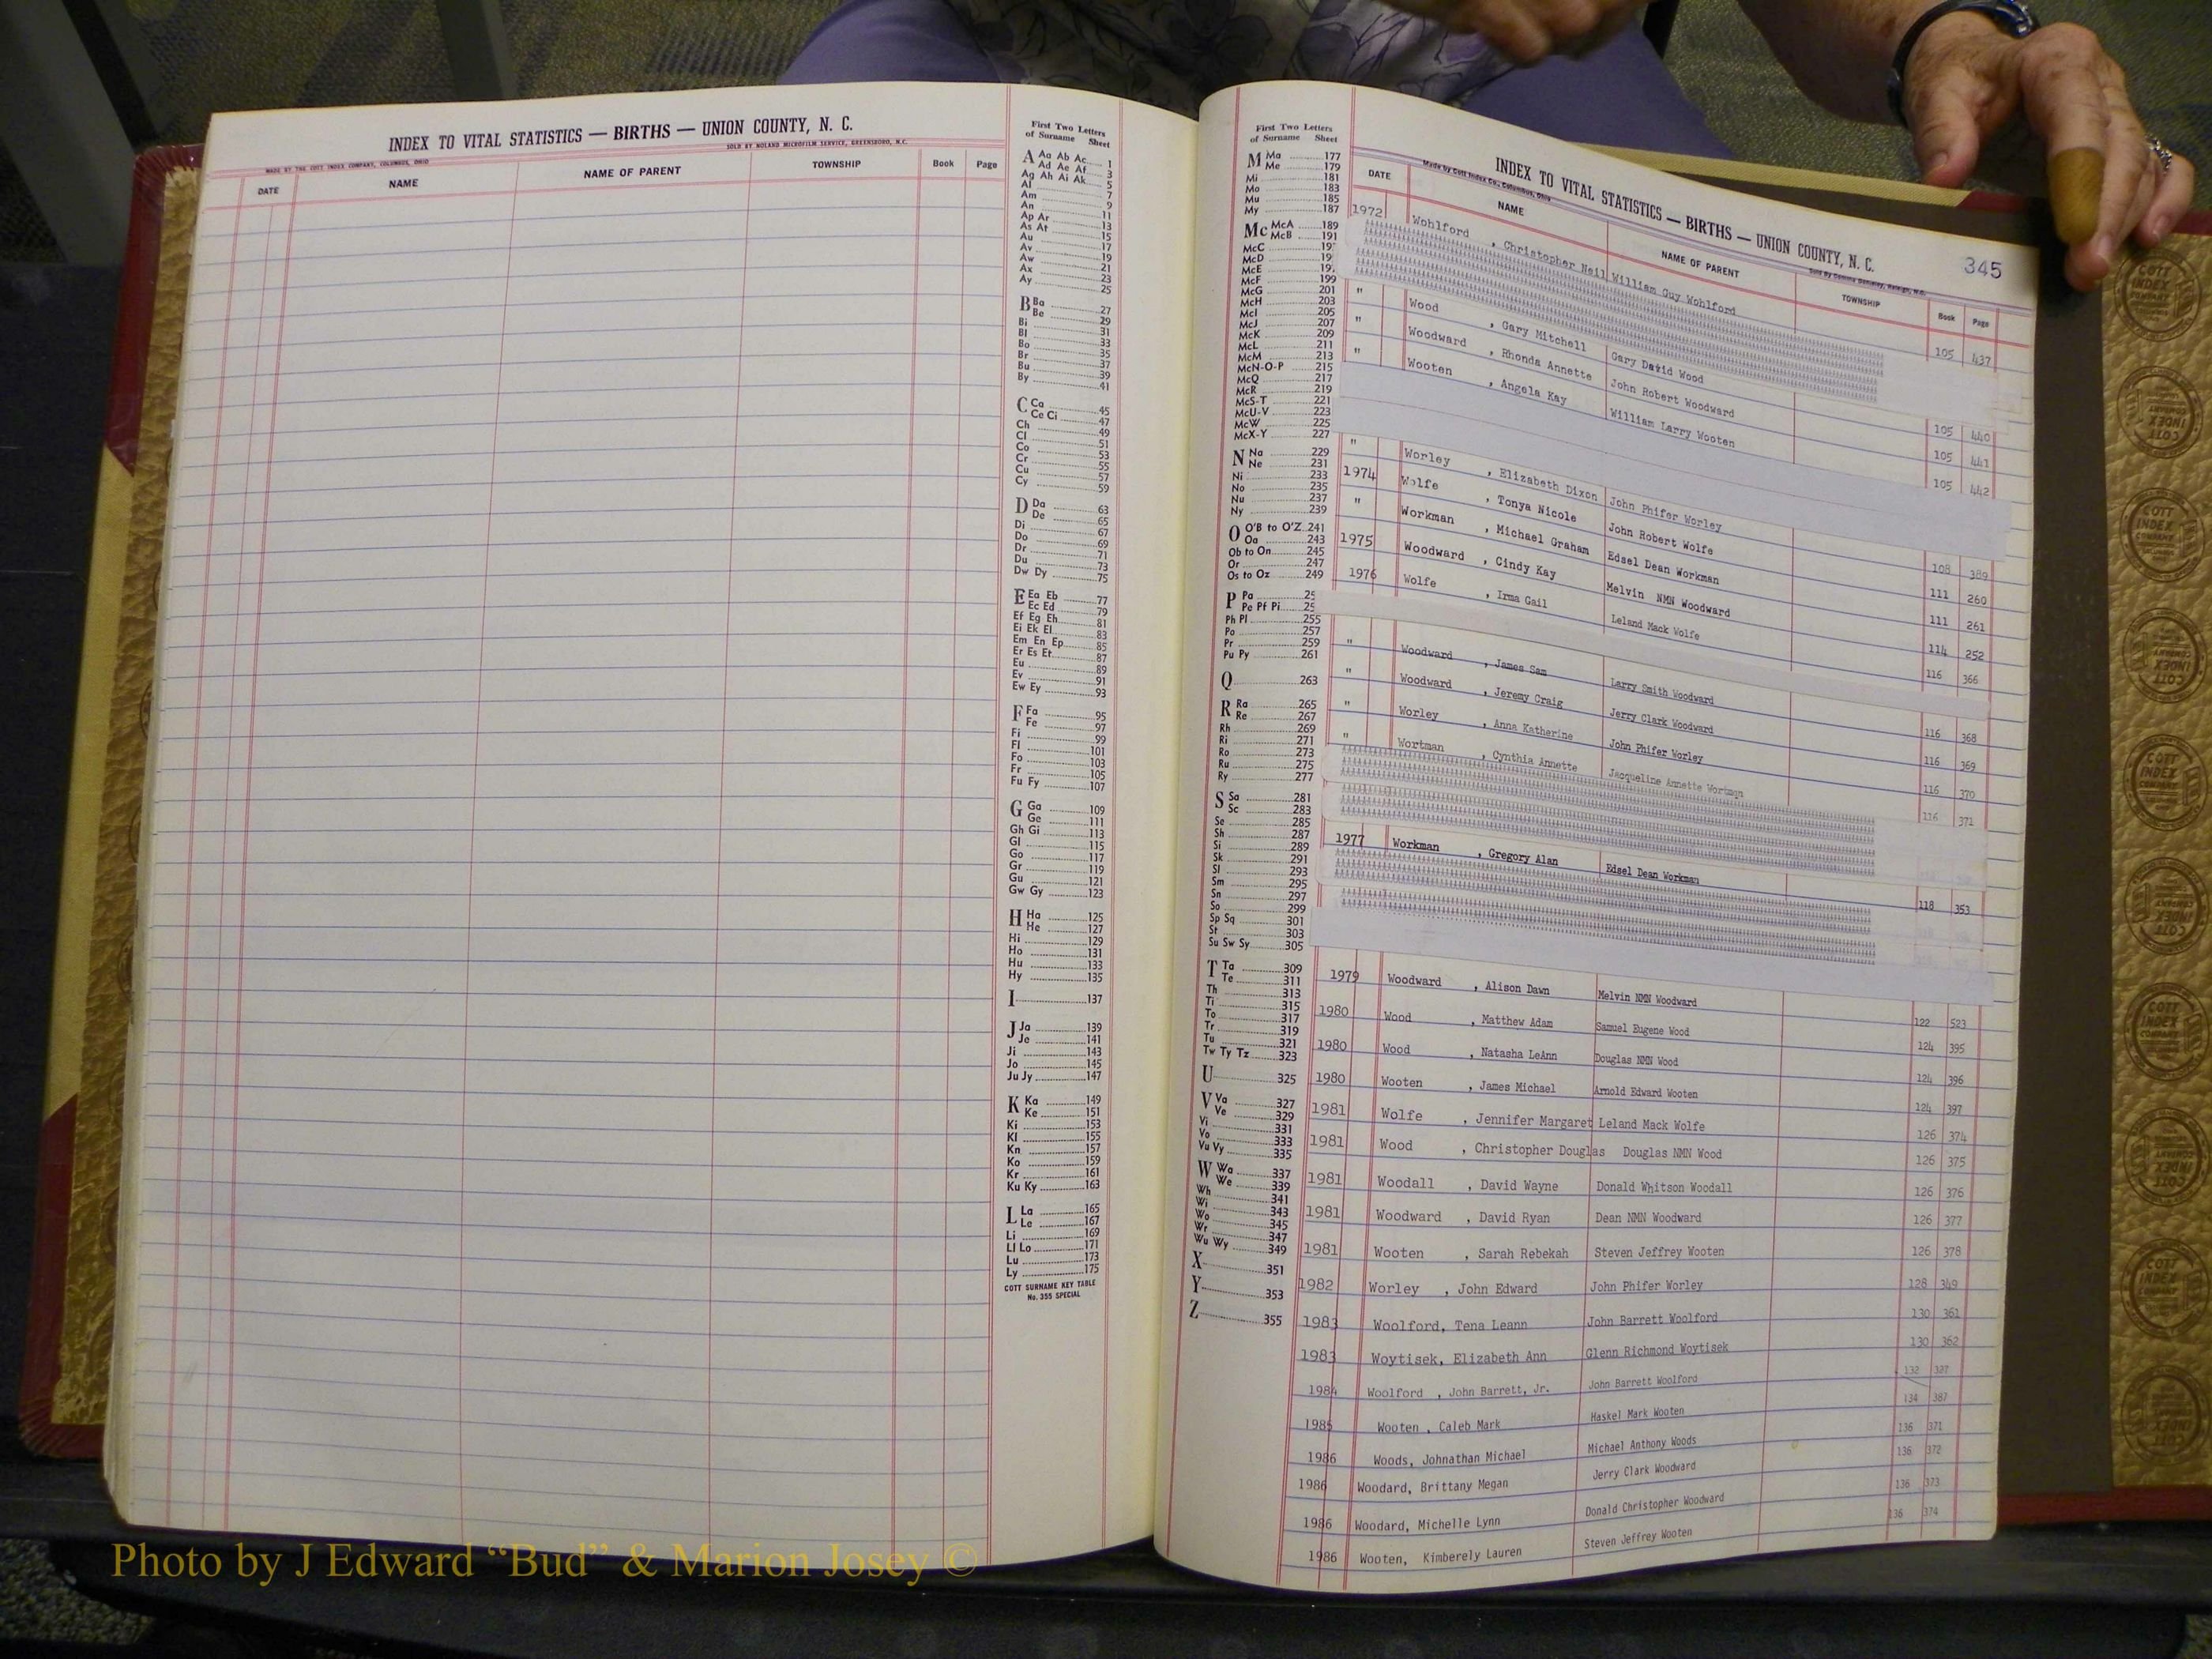 INDEX TO VITAL STATISTICS — BIRTHS — UNION COUNTY, N. C.
MADE BY THE COTT INDEX COMPANY, COLUMBUS, OHIO
SOLD BY NOLAND MICROFILM SERVICE, GREENSBORO, N.C.
DATE NAME NAME OF PARENT TOWNSHIP Book Page
First Two Letters
of Surname Sheet
A Aa Ab Ac 1
Ad Ae Af 3
Ag Ah Ai Ak 5
Al 7
Am 9
An 11
Ap Ar 13
As At 15
Au 17
Av 19
Aw 21
Ax 23
Ay 25
B Ba 27
Be 29
Bi 31
Bl 33
Bo 35
Br 37
Bu 39
By 41
C Ca 45
Ce Ci 47
Ch 49
Cl 51
Co 53
Cr 55
Cu 57
Cy 59
D Da 63
De 65
Di 67
Do 69
Dr 71
Du 73
Dw Dy 75
E Ea Eb 77
Ec Ed 79
Ef Eg Eh 81
Ei Ek El 83
Em En Ep 85
Er Es Et 87
Eu 89
Ev 91
Ew Ey 93
F Fa 95
Fe 97
Fi 99
Fl 101
Fo 103
Fr 105
Fu Fy 107
G Ga 109
Ge 111
Gh Gi 113
Gl 115
Go 117
Gr 119
Gu 121
Gw Gy 123
H Ha 125
He 127
Hi 129
Ho 131
Hu 133
Hy 135
I 137
J Ja 139
Je 141
Ji 143
Jo 145
Ju Jy 147
K Ka 149
Ke 151
Ki 153
Kl 155
Kn 157
Ko 159
Kr 161
Ku Ky 163
L La 165
Le 167
Li 169
Ll Lo 171
Lu 173
Ly 175
COTT SURNAME KEY TABLE
No. 355 SPECIAL
First Two Letters
of Surname Sheet
M Ma 177
Me 179
Mi 181
Mo 183
Mu 185
My 187
Mc McA 189
McB 191
McC
McD
McE
McF 199
McG 201
McH 203
McI 205
McJ 207
McK 209
McL 211
McM 213
McN-O-P 215
McQ 217
McR 219
McS-T 221
McU-V 223
McW 225
McX-Y 227
N Na 229
Ne 231
Ni 233
No 235
Nu 237
Ny 239
O O'B to O'Z 241
Oa 243
Ob to On 245
Or 247
Os to Oz 249
P Pa
Pe Pf Pi
Ph Pl 255
Po 257
Pr 259
Pu Py 261
Q 263
R Ra 265
Re 267
Rh 269
Ri 271
Ro 273
Ru 275
Ry 277
S Sa 281
Sc 283
Se 285
Sh 287
Si 289
Sk 291
Sl 293
Sm 295
Sn 297
So 299
Sp Sq 301
St 303
Su Sw Sy 305
T Ta 309
Te 311
Th 313
Ti 315
To 317
Tr 319
Tu 321
Tw Ty Tz 323
U 325
V Va 327
Ve 329
Vi 331
Vo 333
Vu Vy 335
W Wa 337
We 339
Wh 341
Wi 343
Wo 345
Wr 347
Wu Wy 349
X 351
Y 353
Z 355
INDEX TO VITAL STATISTICS — BIRTHS — UNION COUNTY, N. C. 345
Made by Cott Index Co., Columbus, Ohio
DATE NAME NAME OF PARENT TOWNSHIP Book Page
1972 Wohlford , Christopher Neil William Guy Wohlford 105 437
" Wood , Gary Mitchell Gary David Wood 105 440
" Woodward , Rhonda Annette John Robert Woodward 105 441
" Wooten , Angela Kay William Larry Wooten 105 442
" Worley , Elizabeth Dixon John Phifer Worley 108 389
1974 Wolfe , Tonya Nicole John Robert Wolfe 111 260
" Workman , Michael Graham Edsel Dean Workman 111 261
1975 Woodward , Cindy Kay Melvin NMN Woodward 114 252
1976 Wolfe , Irma Gail Leland Mack Wolfe 116 366
" Woodward , James Sam Larry Smith Woodward 116 368
" Woodward , Jeremy Craig Jerry Clark Woodward 116 369
" Worley , Anna Katherine John Phifer Worley 116 370
" Wortman , Cynthia Annette Jacqueline Annette Wortman 116 371
1977 Workman , Gregory Alan Edsel Dean Workman 118 353
1979 Woodward , Alison Dawn Melvin NMN Woodward 122 523
1980 Wood , Matthew Adam Samuel Eugene Wood 124 395
1980 Wood , Natasha LeAnn Douglas NMN Wood 124 396
1980 Wooten , James Michael Arnold Edward Wooten 124 397
1981 Wolfe , Jennifer Margaret Leland Mack Wolfe 126 374
1981 Wood , Christopher Douglas Douglas NMN Wood 126 375
1981 Woodall , David Wayne Donald Whitson Woodall 126 376
1981 Woodward , David Ryan Dean NMN Woodward 126 377
1981 Wooten , Sarah Rebekah Steven Jeffrey Wooten 126 378
1982 Worley , John Edward John Phifer Worley 128 349
1983 Woolford, Tena Leann John Barrett Woolford 130 361
1983 Woytisek, Elizabeth Ann Glenn Richmond Woytisek 130 362
1984 Woolford , John Barrett, Jr. John Barrett Woolford 132
1985 Wooten , Caleb Mark Haskel Mark Wooten 134 387
1986 Woods, Johnathan Michael Michael Anthony Woods 136 371
1986 Woodard, Brittany Megan Jerry Clark Woodward 136 372
1986 Woodard, Michelle Lynn Donald Christopher Woodward 136 373
1986 Wooten, Kimberely Lauren Steven Jeffrey Wooten 136 374
Photo by J Edward “Bud” & Marion Josey ©